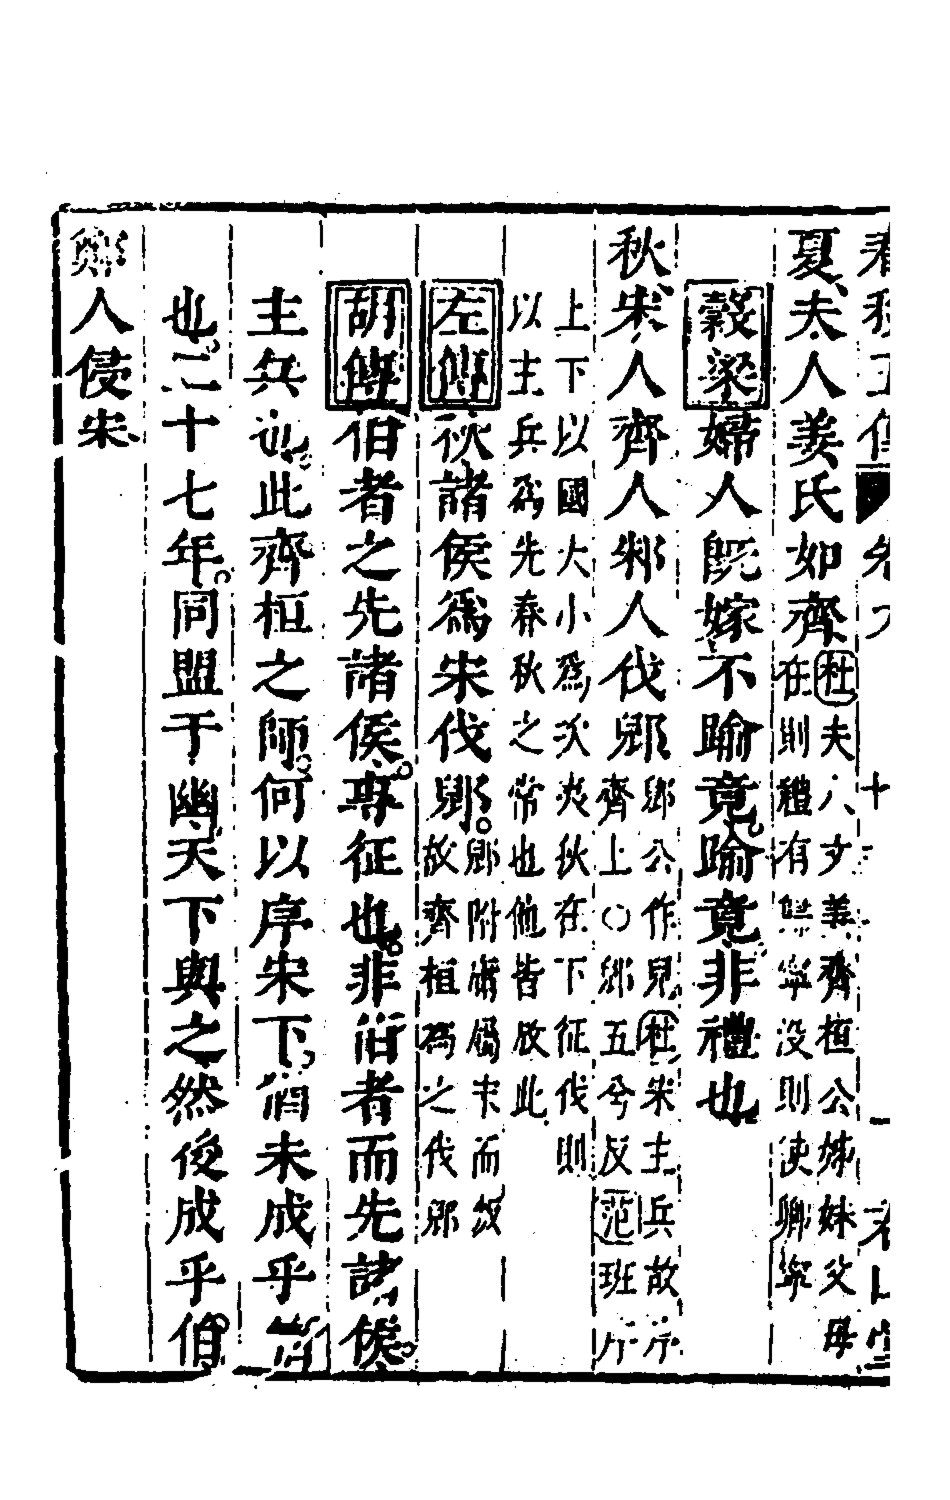 夏夫人姜氏如齊
杜夫人文姜齊桓公姊妹父母
在則禮有歸寧沒則使卿寧
穀梁婦人旣嫁不踰竟踰竟非禮也
秋宋人齊人邾人伐郳
郳公作兒杜宋主兵故序
齊上○郳五兮反范班序
上下以國大小爲次夷狄在下征伐則
以主兵爲先春秋之常也他皆放此
左傳秋諸侯爲宋伐郳
郳附庸屬宋而叛
故齊桓爲之伐郳
胡傳伯者之先諸侯專征也非伯者而先諸侯
主兵也此齊桓之師何以序宋下猶未成乎伯
也二十七年同盟于幽天下與之然後成乎伯
鄭人侵宋